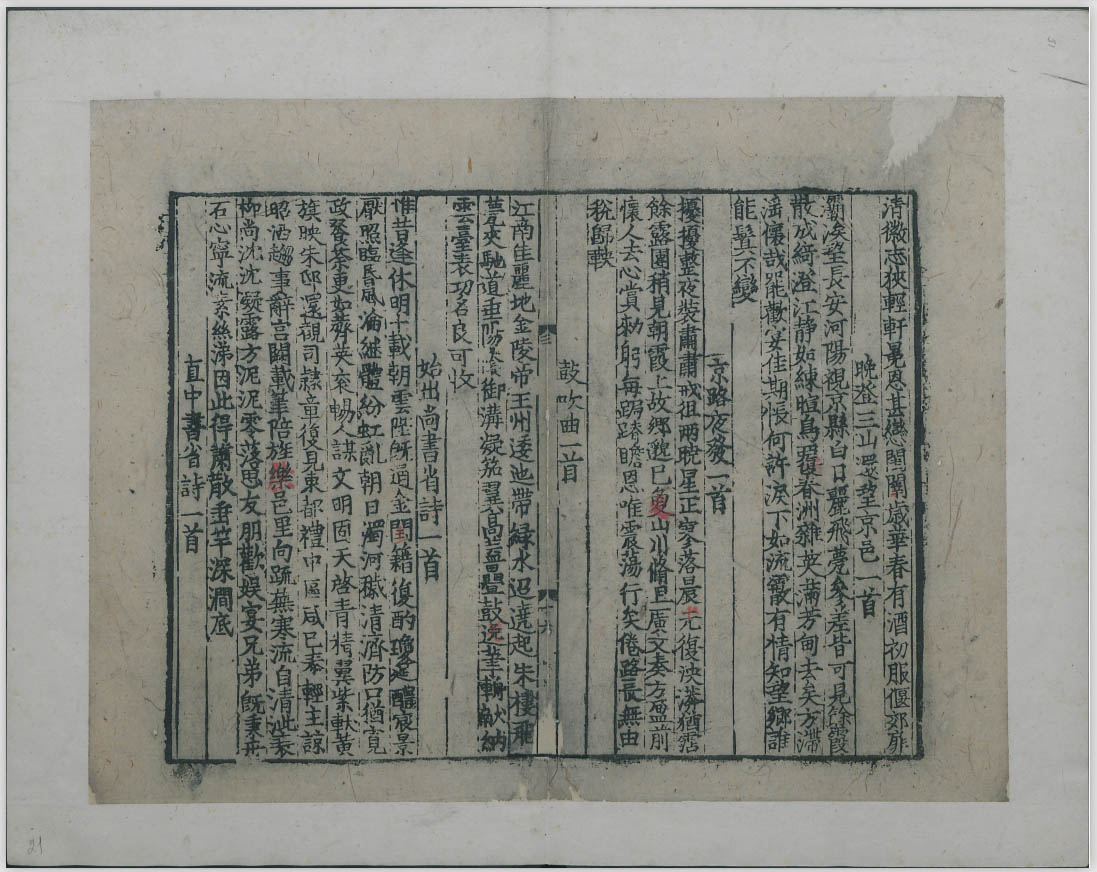 清微志狹輕軒冕恩甚戀閨闈歲華春有酒初服偃郊扉
晚登三山還望京邑一首
灞涘望長安河陽視京縣白日麗飛甍參差皆可見餘霞
散成綺澄江静如練喧鳥覆春洲雜英滿芳甸去矣方滯
淫懷哉罷歡宴佳期悵何許淚下如流霰有情知望鄉誰
能鬒不變
京路夜發一首
擾擾整夜裝肅肅戒徂兩曉星正寥落晨光復泱漭猶霑
餘露團稍見朝霞上故鄉邈已夐山川脩且廣文奏方盈前
懷人去心賞勑躬每跼蹐瞻恩唯震蕩行矣倦路長無由
稅歸鞅
鼓吹曲一首
三
十六
江南佳麗地金陵帝王州逶迤帶緑水迢遞起朱樓飛
甍夾馳道垂楊蔭御溝凝笳翼高蓋疊鼓送華輈獻納
雲臺表功名良可收
始出尚書省詩一首
惟昔逢休明十載朝雲陛既通金閨籍復酌瓊筵醴宸景
厭照臨昏風淪繼體紛虹亂朝日濁河穢清濟防口猶寬
政餐荼更如薺英衮暢人謀文明固天啓青精翼紫軑黄
旗映朱邸還覩司隸章復見東都禮中區咸已泰輕生諒
昭洒趨事辭宫闕載筆陪旌棨邑里向疏蕪寒流自清泚衰
柳尚沈沈凝露方泥泥零落思友朋歡娱宴兄弟既秉丹
石心寧流素絲涕因此得蕭散垂竿深澗底
直中書省詩一首
21